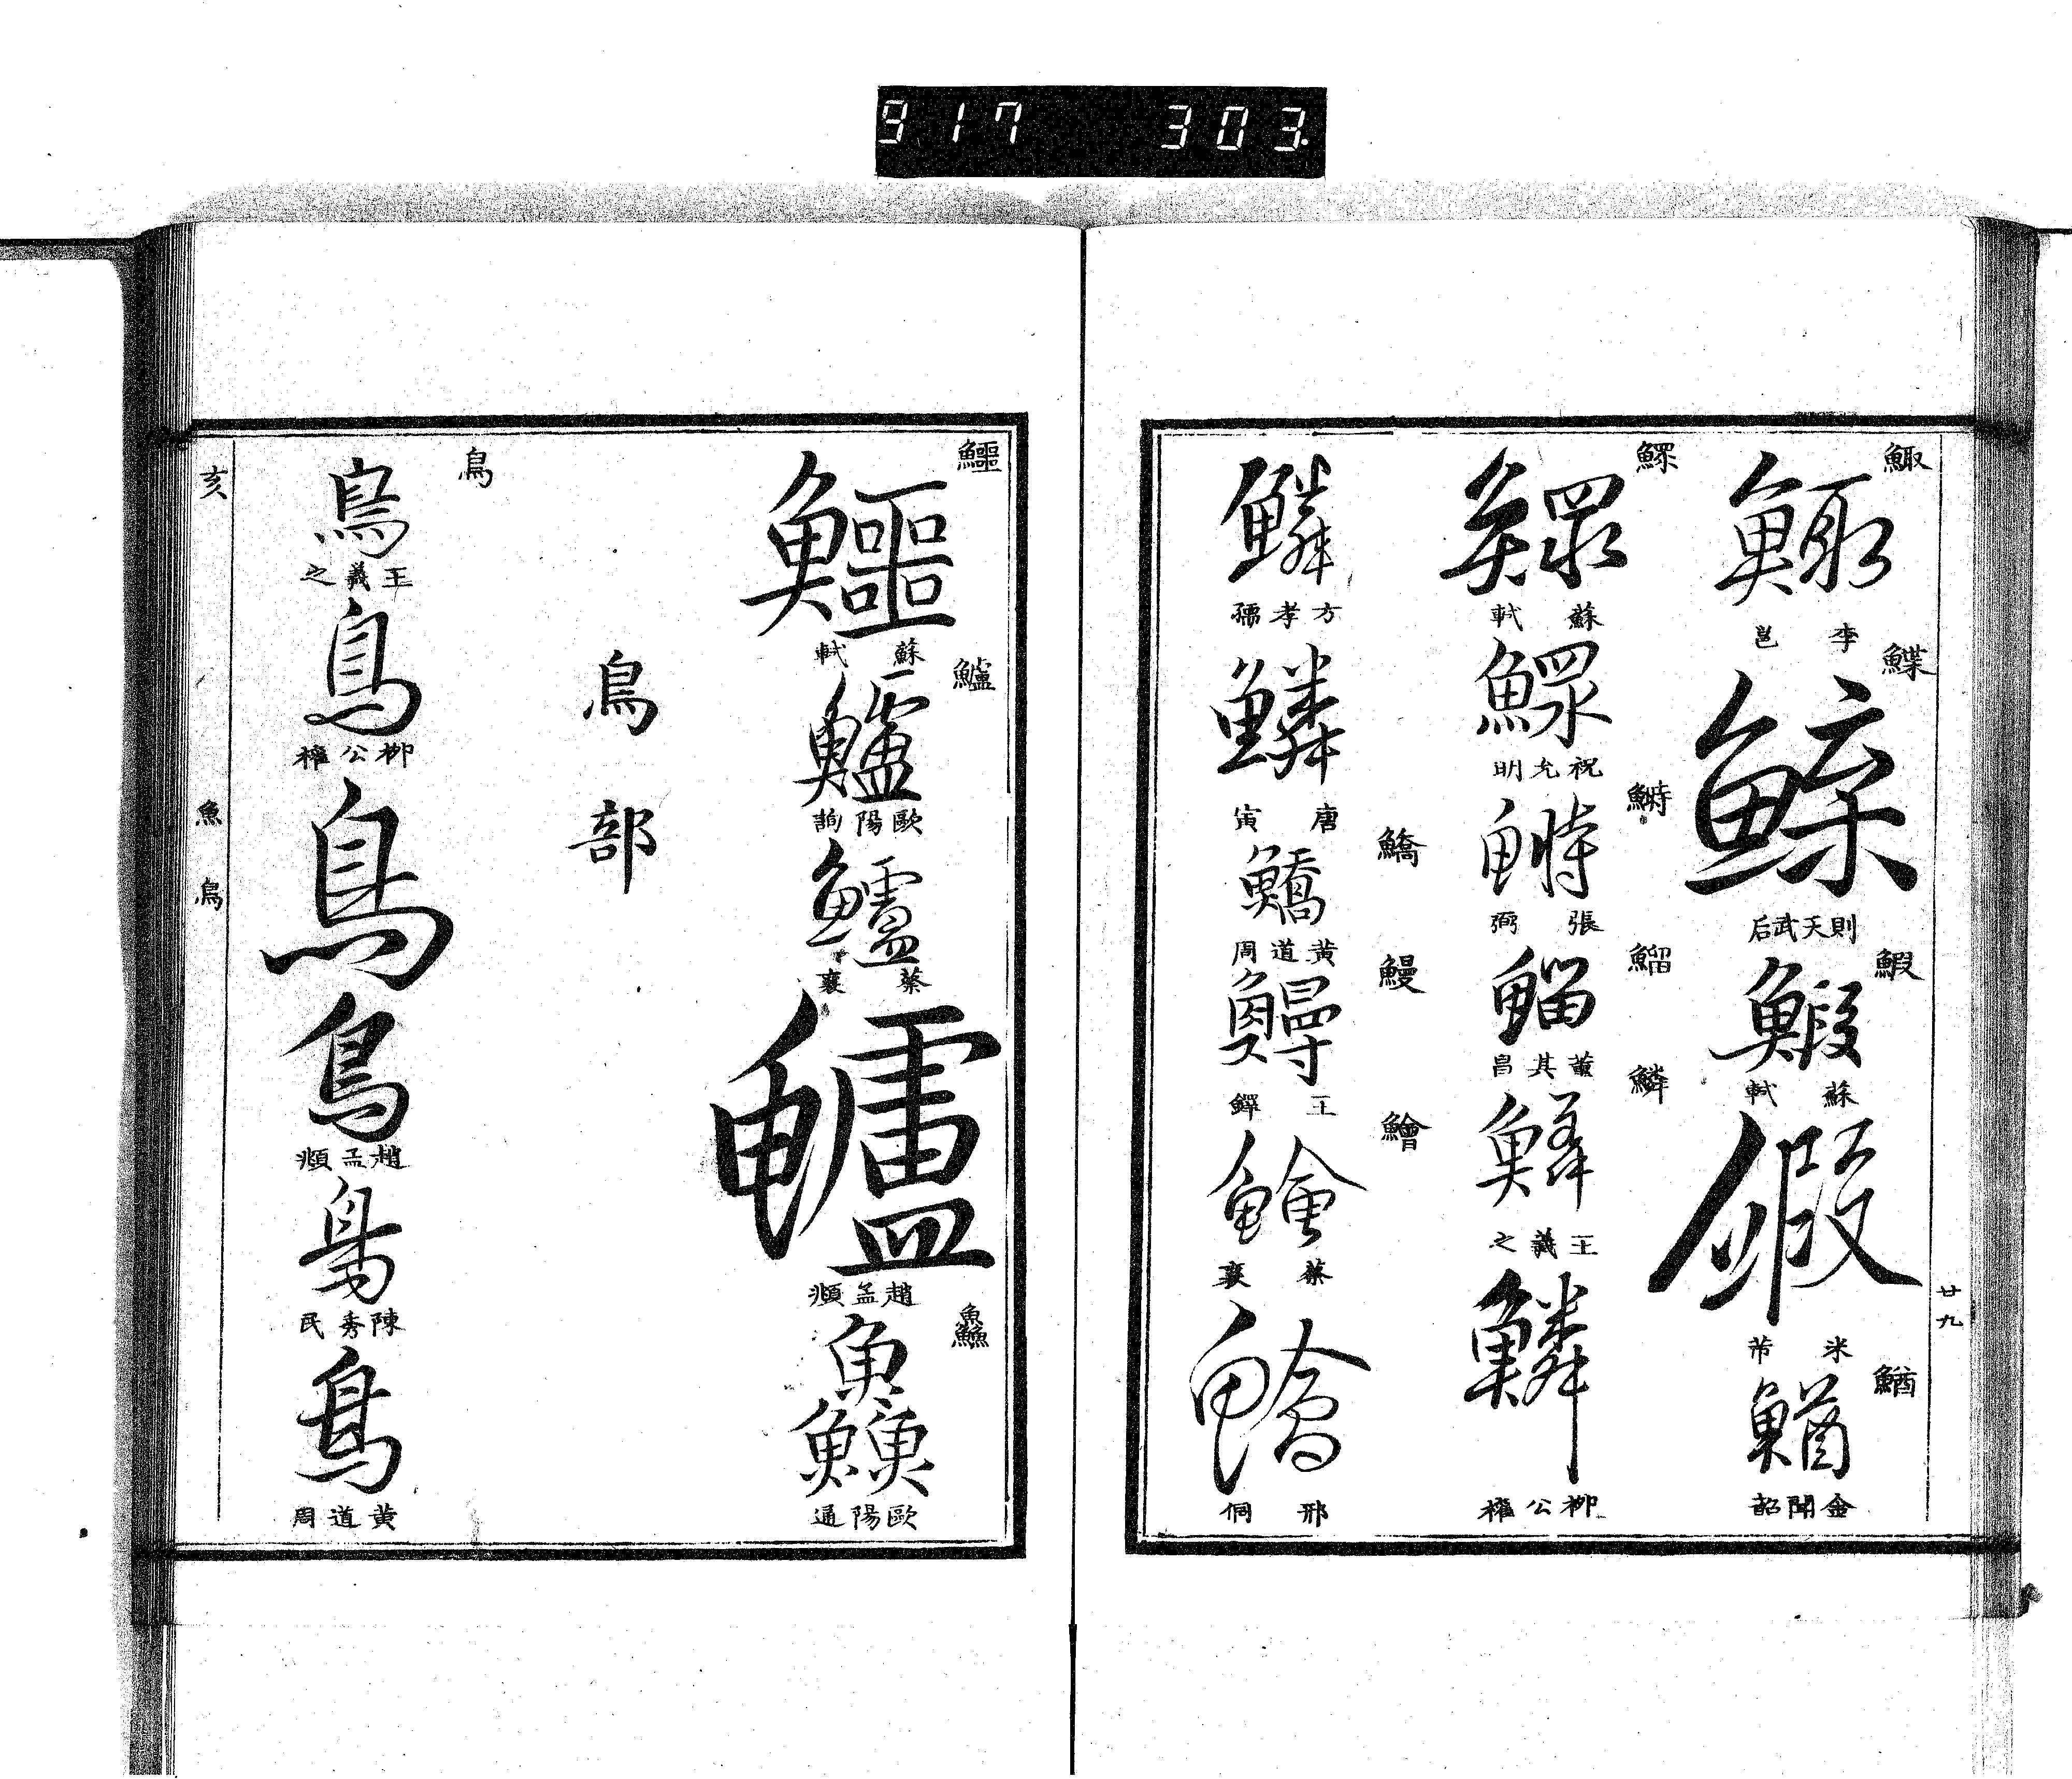 917 303
廿九
鯫
鯫
李邕
鰈
則天武后
鰕
鰕
蘇軾
鰕
米芾
鰌
鰌
金聞韶
鰥
鰥
蘇軾
鰥
祝允明
鰣
鰣
張弼
鰡
鰡
董其昌
鱗
鱗
王羲之
鱗
柳公權
鱗
方孝孺
鱗
唐寅
鱎
鱎
黃道周
鰻
鰻
王鐸
鱠
鱠
蔡襄
鱠
邢侗
鱷
鱷
蘇軾
鱸
鱸
歐陽詢
鱸
蔡襄
鱸
趙孟頫
鱻
鱻
歐陽通
鳥部
鳥
鳥
王羲之
鳥
柳公權
鳥
鳥
趙孟頫
鳥
陳秀民
鳥
黃道周
亥
魚
鳥